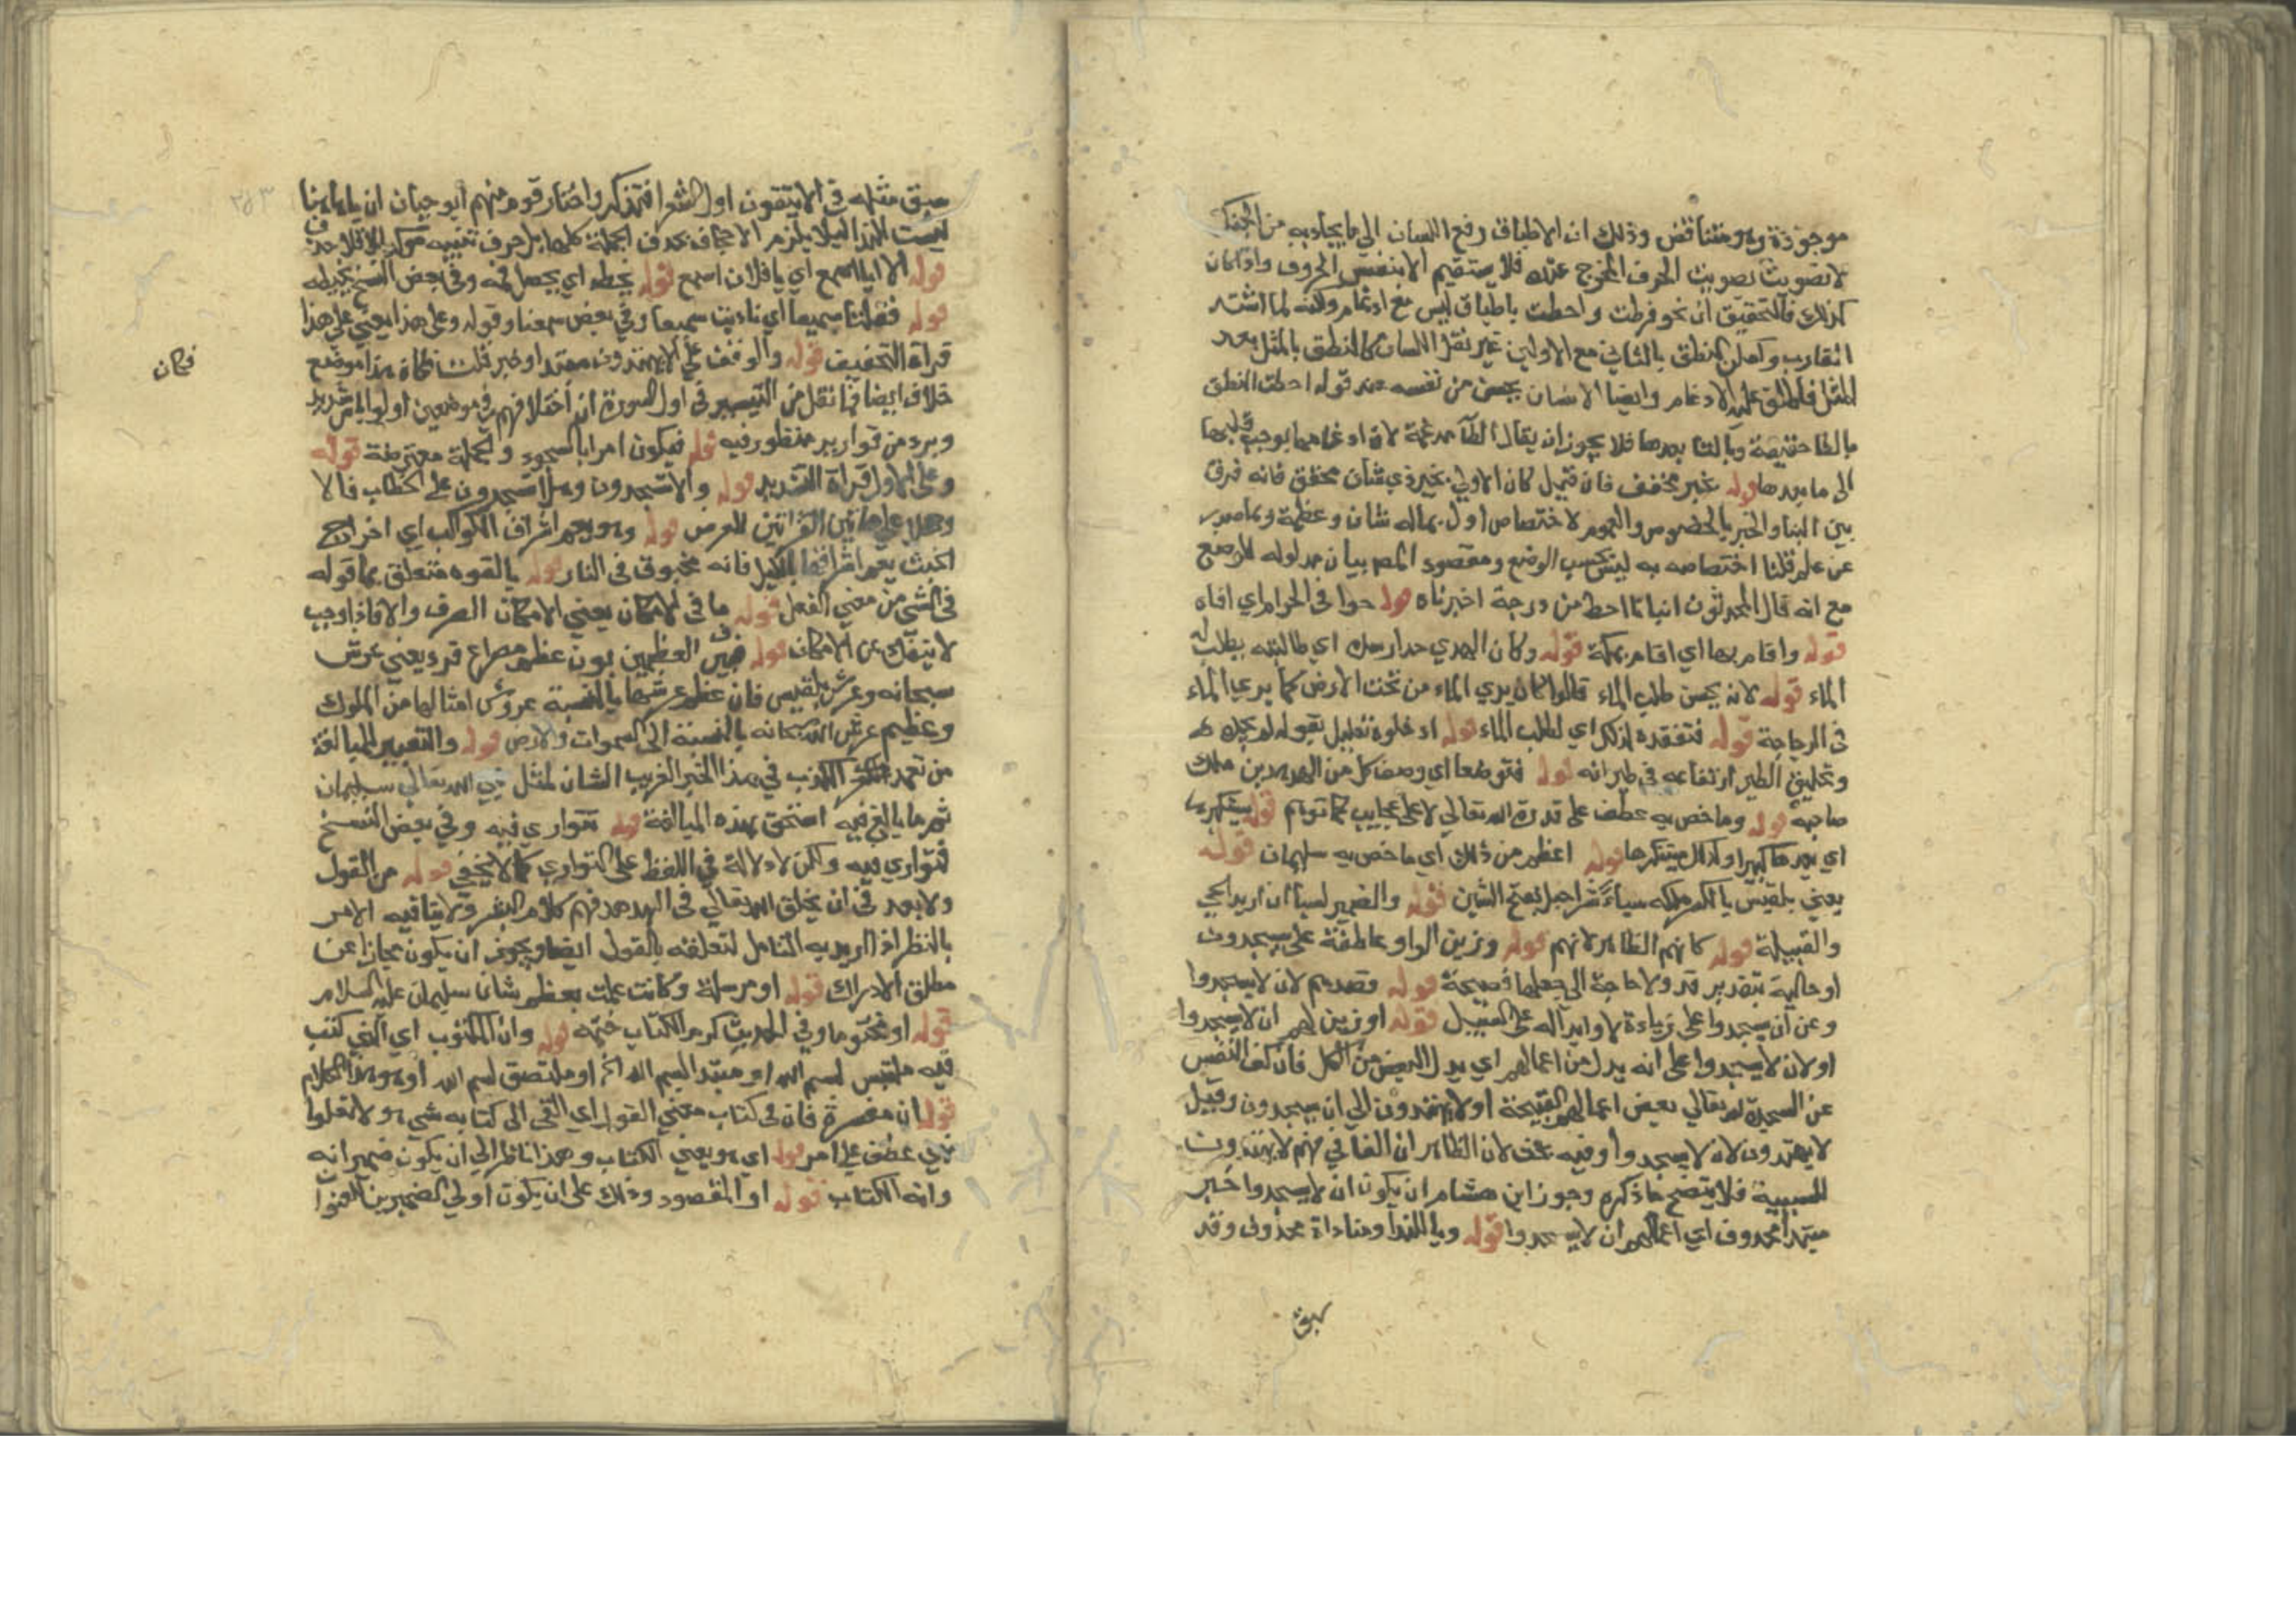 موجودة وهو متناقض وذلك ان الاطباق رفع اللسان الي ما يحاذيه من الحنك
لا تصويت بصويت الحرف المخرج عنه فلا يستقيم الا بنفس الحروف واذا كان
كذلك فالتحقيق ان نحو فرطت واحطت باطباق ليس مع ادغام ولكنه لما اشتد
التقارب وامكن النطق بالثاني مع الاول من غير نقل اللسان كالنطق بالمثل بعد
المثل فاطلق عليه الادغام وايضا الانسان يحس من نفسه عند قوله احطت النطق
بالطا حقيقة وبالتا بعدها فلا يجوز ان يقال الطا مدغمة لان ادغامها يوجب قلبها
الى ما بعدها قوله غير مخفف فان قيل كان الاولي بخبر ذي شان محقق فانه فرق
بين النبا والخبر بالخصوص والعموم لاختصاص اول بماله شان وعظمة وبما صدر
عن علم قلنا اختصاصه به ليس بحسب الوضع ومقصود المص بيان مدلوله الموضع
مع انه قال المحدثون انبانا احط من درجة اخبرناه قوله حوا في الحرم اي افاه
قوله واقام بها اي اقام بمكة قوله وكان الهدهد رائده اي طالبته يطلب له
الماء قوله لانه يحسن طلب الماء قالوا كان يري الماء من تحت الارض كما يري الماء
في الزجاجة قوله فتفقده لذلك اي لطلب الماء قوله اذ خلوه تعليل لقوله لم يجده
وتحليق الطير ارتفاعه في طيرانه قوله فتواصفا اي وصف كل من الهدهدين ملك
صاحبه قوله وما خص به عطف على قدرة الله تعالي لا على عجايب كما توهم قوله يستكبرها
اي يعدها كبيرا وكذا يستنكرها قوله اعظم من ذلك اي ما خص به سليمان قوله
يعني بلقيس بالكسر ملكة سبا شراحيل بفتح الشين قوله والضمير لسبا ان اريد الحي
والقبيلة قوله كانهم الظاهر لانهم قوله وزين الواو عاطفة على يسجدون
او حالية بتقدير قد ولا حاجة الى جعلها فصيحة قوله فصدهم لان لا يسجدوا
وعن ان يسجدوا على زيادة لا وابداله على السبيل قوله او زين لهم ان لا يسجدوا
او لان لا يسجدوا على انه بدل من اعمالهم اي بدل البعض من الكل فان كف النفس
عن السجدة لله تعالي بعض اعمالهم القبيحة او لا يهتدون الي ان يسجدون وقيل
لا يهتدون لان لا يسجدوا وفيه بحث لان الظاهر ان الفا في فهم لا يهتدون
للسببية فلا يتضح ما ذكره وجوز ابن هشام ان يكون ان لا يسجدوا خبر
مبتدا محذوف اي اعمالهم ان لا يسجدوا قوله ويا للندا ومناداه محذوف وقد
سبق
سبق مثله في الا يتقون اول الشعرا فتذكر واختار قوم منهم ابو حيان ان يا هاهنا
ليست للندا ليلا يلزم الاجحاف بحذف الجملة كلها بل حرف تنبيه موكد للاقلا حذف
قوله الا يا اسمع اي يا فلان اسمع قوله بخطه اي يحصل لحنه وفي بعض النسخ
قوله فقلت سميعا اي ناديت سميعا وفي بعض سمعنا وقوله وعلى هذا يعني على هذا
قراة التخفيف قوله والوقف على لا يهتدون مبتدا وخبر قلت كان هذا موضع
خلاف ايضا فما نقل من التيسير في اول السورة ان اختلافهم في موضعين اولو باس شديد
وبرد من قوارير منظور فيه قوله فيكون امرا بالسجود والجملة معترضة قوله
وعلى الاول قراة التشديد قوله والا تسجدون وهلا تسجدون على الخطاب فالا
وهلا على هاتين القراتين للعرض قوله وهو يعم اشراق الكواكب اي اخراج
الخبث يعم اشراقها بالليل فانه مخبوق في النار قوله بالقوه متعلق بما قوله
في الشي من معني الفعل قوله ما في الامكان يعني الامكان الصرف والا فاذا وجب
لا ينفك عن الامكان قوله فبين العظيمين بون عظيم مصراع فرد يعني عرش
سبحانه وعرش بلقيس فان عظم عرشها بالنسبة عروش امثالها من الملوك
وعظيم عرش الله سبحانه بالنسبة الى السموات والارض قوله والتغيير للمبالغة
من تعمد الكذب في هذا الخبر الغريب الشان لمثل نبي الله تعالي سليمان
ثم ما بالغ فيه استحق بهذه المبالغة قوله تتواري فيه وفي بعض النسخ
فتواري فيه ولكن لا دلالة في اللفظ على التواري كما لا يخفي قوله من القول
ولا بعد في ان يخلق الله تعالي في الهدهد فهم كلام البشر ولا ينافيه الامر
بالنظر اذا اريد به التامل لتعلقه بالقول ايضا ويجوز ان يكون مجازا عن
مطلق الادراك قوله او مرسلة وكانت علمت بعظم شان سليمان عليه السلام
قوله او مختوما وفي الحديث كرم الكتاب ختمه قوله وان المكتوب اي الذي كتب
فيه ملتبس لبسم الله او مبتدا لبسم الله اخ او ملتصق لبسم الله او هو هذا الكلام
قوله ان مفسرة فان في كتاب معني القول اي القى الى كتاب به شي هو ولا تعلوا
نهي عطف على امر قوله اي هو يعني الكتاب وهذا ناظر الي ان يكون ضمير انه
وانه الكتاب قوله او المقصود وذلك على ان يكون اولي الضميرين للعنوان
فكان
٢٨٣